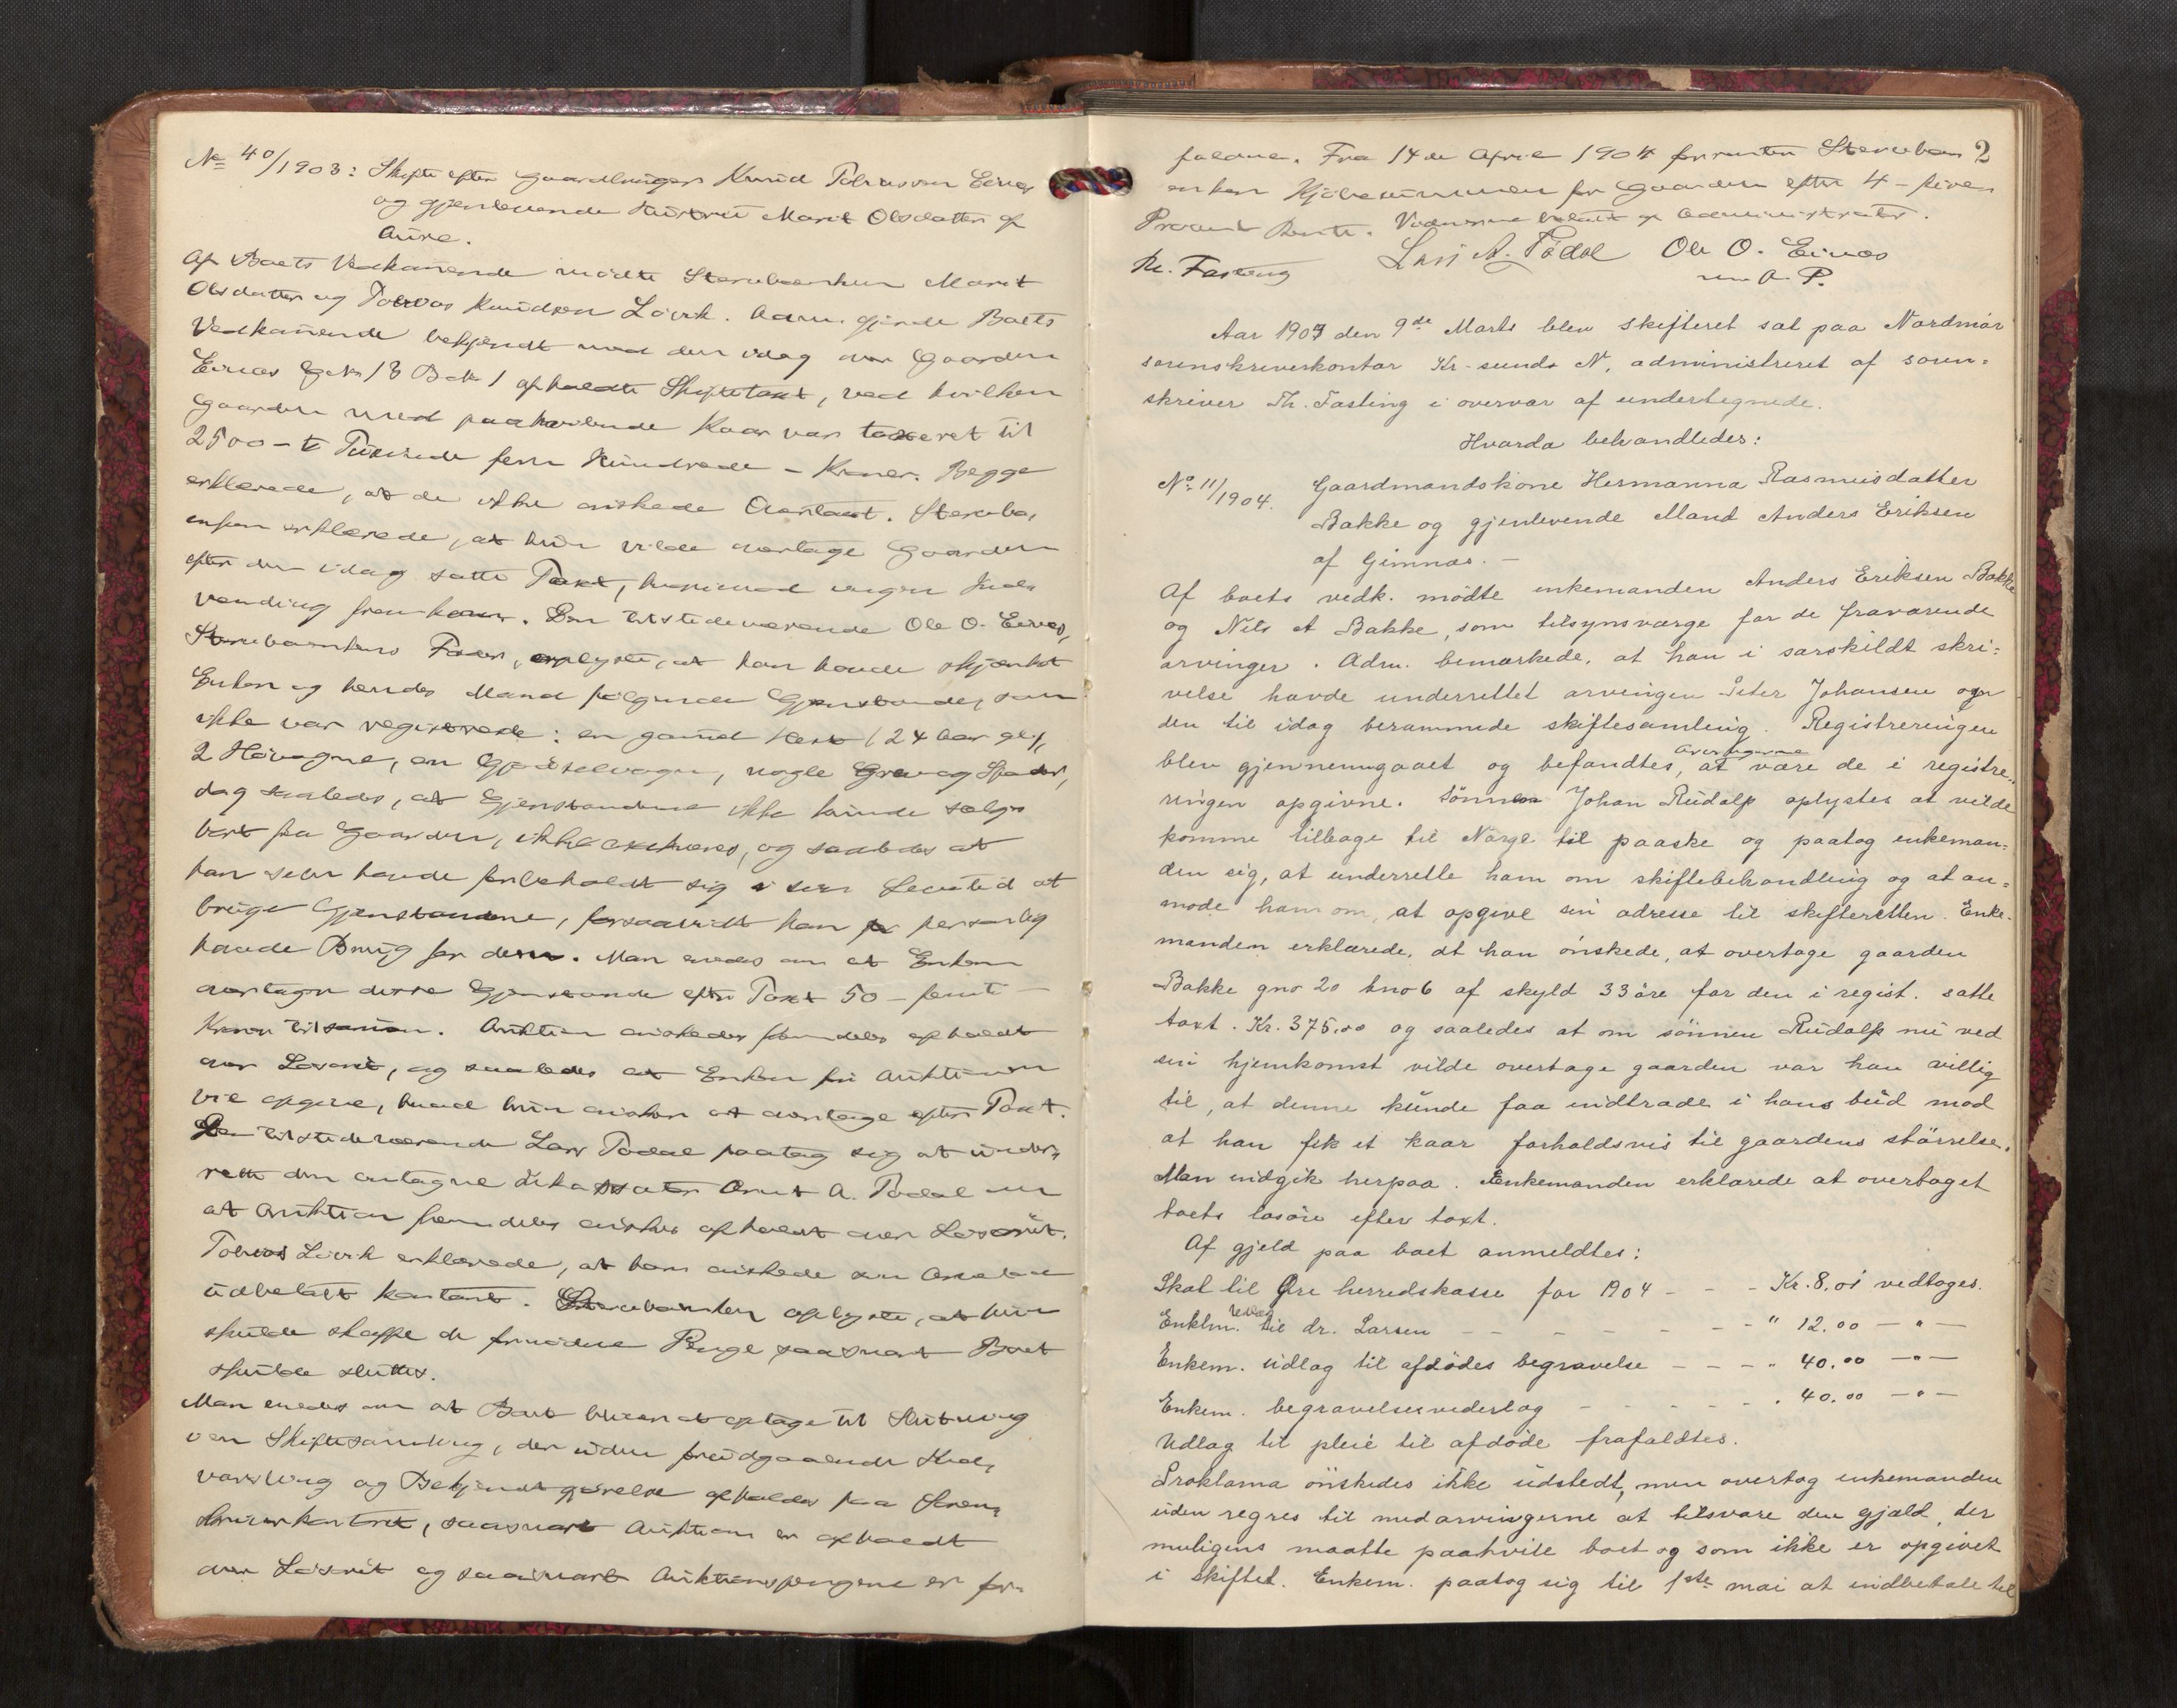 No 40/1903: Skifte efter Gaardbruger Knud Tobiassen Eines
og gjenlevende Hustru Marit Olsdatter af
Aure.
Af Boets Vedkommende mødte Stervboenken Marit
Olsdatter og Tobias Knudsen Lervik. Adm. gjorde Boets
Vedkommende bekjendt med den idag over Gaarden
Eines G.No 13 B.No 1 afholdte Skiftetaxt, ved hvilken
Gaarden med paahvilende Kaar var taxeret til
2500 - to Tusinde fem Hundrede - Kroner. Begge
erklærede, at de ikke ønskede Overtaxt. Stervbo,
enken erklærede, at hun vilde overtage Gaarden
efter den idag satte Taxt, hvorimod ingen Ind,
vending fremkom. Den tilstedeværende Ole O. Eines,
Stervboenkens Fader, oplyste, at han havde skjænket
Enken og hendes Mand følgende Gjenstande, som
ikke var registrerede: en gammel Hest (24 Aar gl.),
2 Høvogne, en Gjødselvogn, nogle Greve og Spader,
dog saaledes, at Gjenstandene ikke kunde sælges
bort fra Gaarden, ikke exekveres, og saaledes at
han selv havde forbeholdt sig i sin Levetid at
bruge Gjenstandene, forsaavidt han personlig
havde Brug for dem. Man enedes om at Enken
overtager disse Gjenstande efter Taxt 50 - femti -
Kroner tilsammen. Auktion ønskedes fremdeles afholdt
over Løsøret, og saaledes at Enken før Auktionen
vil opgive, hvad hun ønsker at overtage efter Taxt.
Den tilstedeværende Lars Todal paatog sig at under,
rette den antagne Inkassator Arnt A. Todal om
at Auktion fremdeles ønskes afholdt over Løsøret.
Tobias Lervik erklærede, at han ønskede sin Arvelod
udbetalt kontant. Stervboenken oplyste, at hun
skulde skaffe de fornødne Penge saasnart Boet
skulde sluttes.
Man enedes om at Boet bliver at optage til Slutning
i en Skiftesamling, der uden forudgaaende Ind,
varsling og Bekjendtgjørelse afholdes paa Soren,
skriverkontoret, saasnart Auktionen er afholdt
over Løsøret og saasnart Auktionspengene er for-
2
faldne. Fra 14de April 1904 forrenter Stervbo
enken Kjøbesummen for Gaarden efter 4 - fire
Procent Rente. Vidnerne betalt af Administrator.
Th. Fasting Lars A. Todal Ole O. Eines
m. P.
Aar 1904 den 9de Marts blev skifteret sat paa Nordmør
sorenskriverkontor Kr-sunds N, administreret af soren=
skriver Th. Fasting i overvær af undertegnede.
Hvorda behandledes:
No 11/1904. Gaardmandskone Hermanna Rasmusdatter
Bakke og gjenlevende Mand Anders Eriksen
af Gimnæs. -
Af boets vedk. mødte enkemanden Anders Eriksen Bakke
og Nils A Bakke, som tilsynsværge for de fraværende
arvinger. Adm. bemærkede, at han i særskildt skri=
velse havde underrettet arvingen Peter Johansen om
den til idag berammede skiftesamling. Registreringen
blev gjennemgaaet og befandtes, arvingerne at være de i registre=
ringen opgivne. Sønnen Johan Rudolf oplystes at vilde
komme tilbage til Norge til paaske og paatog enkeman=
den sig, at underrette ham om skiftebehandling og at an=
mode ham om, at opgive sin adresse til skifteretten. Enke-
manden erklærede, at han ønskede, at overtage gaarden
Bakke gno 20 bno 6 af skyld 33 øre for den i regist. satte
taxt. Kr. 375,00 og saaledes at om sønnen Rudolf nu ved
sin hjemkomst vilde overtage gaarden var han villig
til, at denne kunde faa indtræde i hans bud mod
at han fik et kaar forholdsvis til gaardens størrelse.
Man indgik herpaa. Enkemanden erklærede at overtaget
boets løsøre efter taxt.
Af gjeld paa boet anmeldtes:
Skat til Øre herredskasse for 1904 - - - Kr. 8,01 vedtoges.
Enklm. udlæg til dr. Larsen - - - - - - - " 12.00 - " -
Enkem. udlæg til afdødes begravelse - - - - " 40.00 - " -
Enkem. begravelsesvederlag - - - - - - " 40.00 - " -
Udlæg til pleie til afdøde frafaldtes.
Proklama ønskedes ikke udstedt, men overtog enkemanden
uden regres til medarvingerne at tilsvare den gjæld, der
muligens maatte paahvile boet og som ikke er opgivet
i skiftet. Enkem. paatog sig til 1ste mai at indbetale til